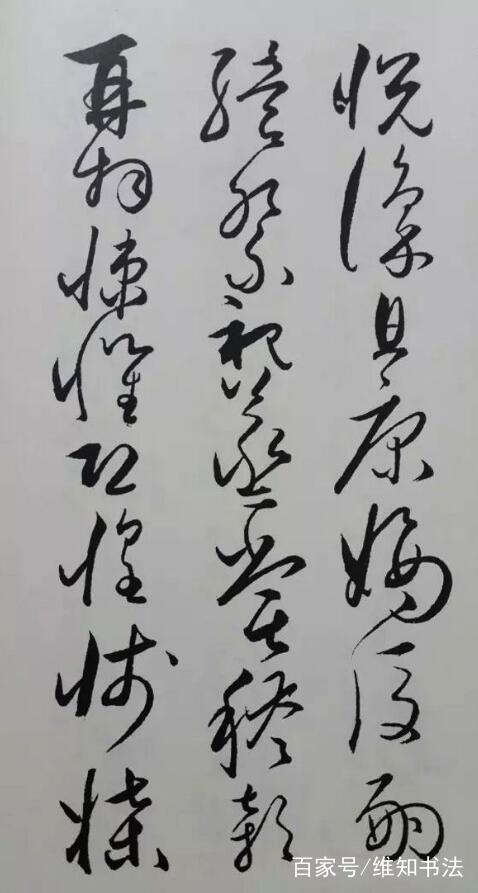 悅豫且康嫡後嗣
續祭祀蒸嘗稽顙
再拜悚懼恐惶牋牒
百家号/维知书法